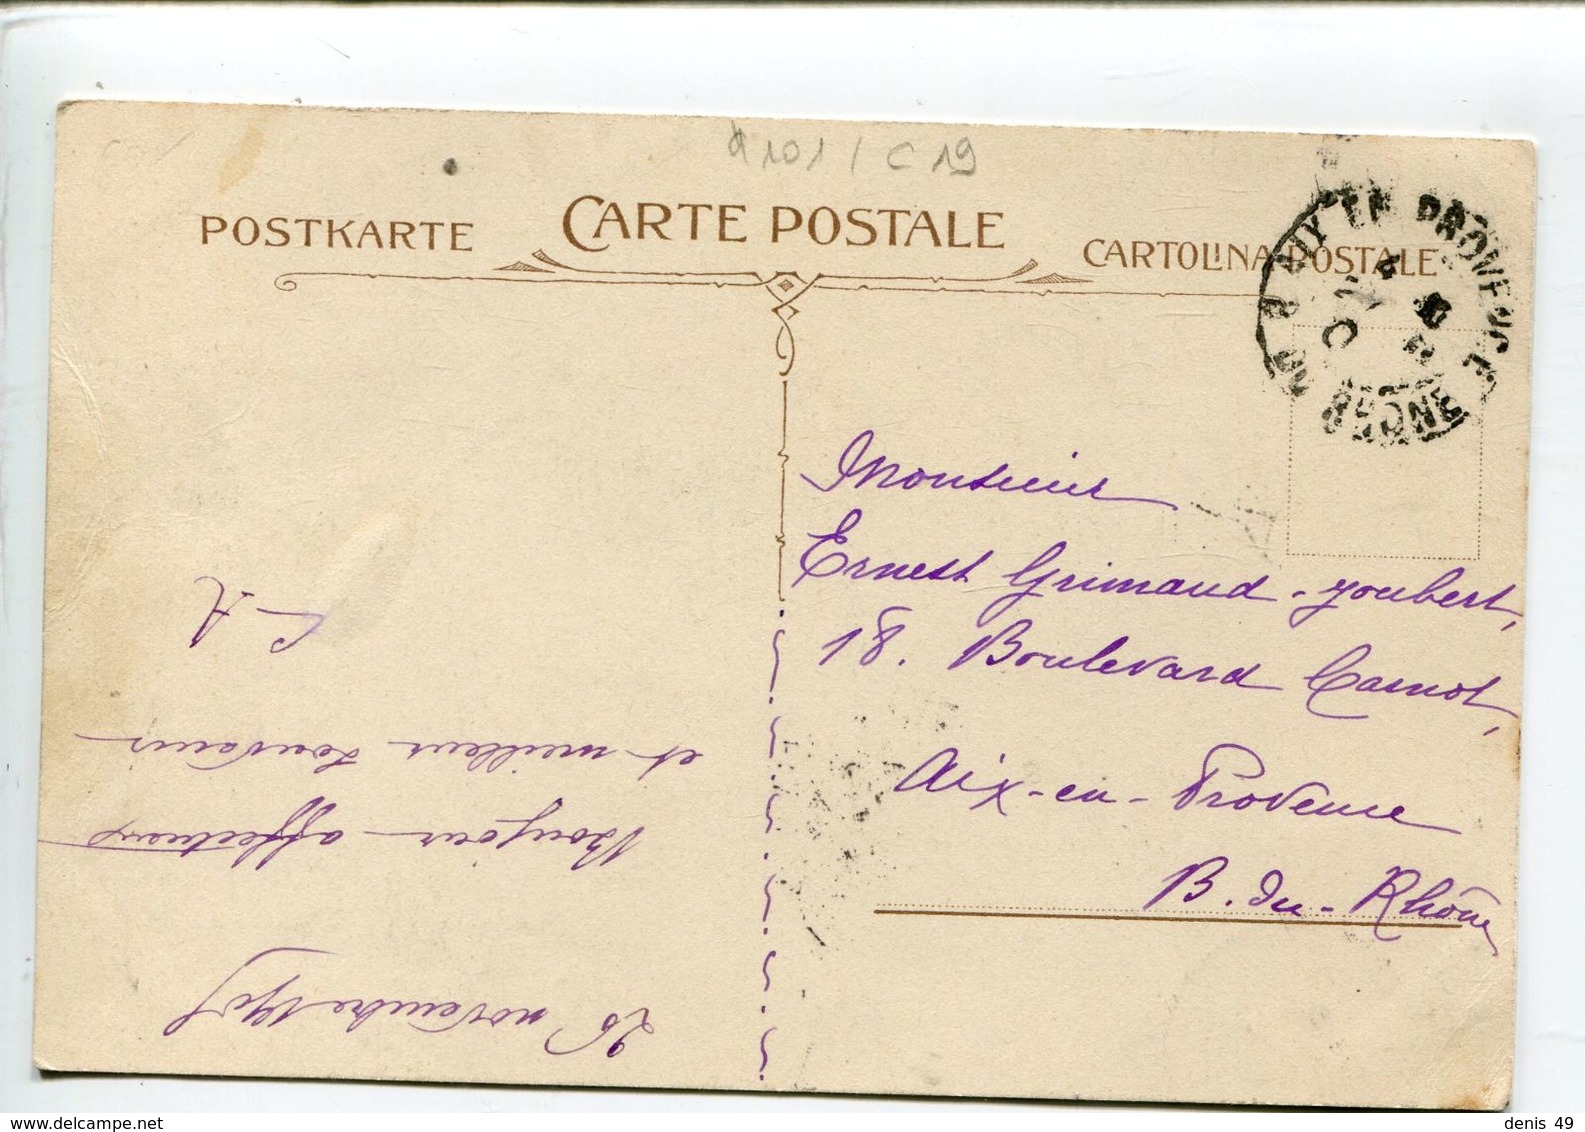 a101 / C19
POSTKARTE
CARTE POSTALE
CARTOLINA POSTALE
AIX EN PROVENCE
B DU RHONE
Monsieur
Ernest Grimaud-Joubert,
18. Boulevard Carnot,
Aix-en-Provence
B. du-Rhône
26 novembre 1905
Bonjour affectueux
et meilleur souvenir
C A
www.delcampe.net
denis 49